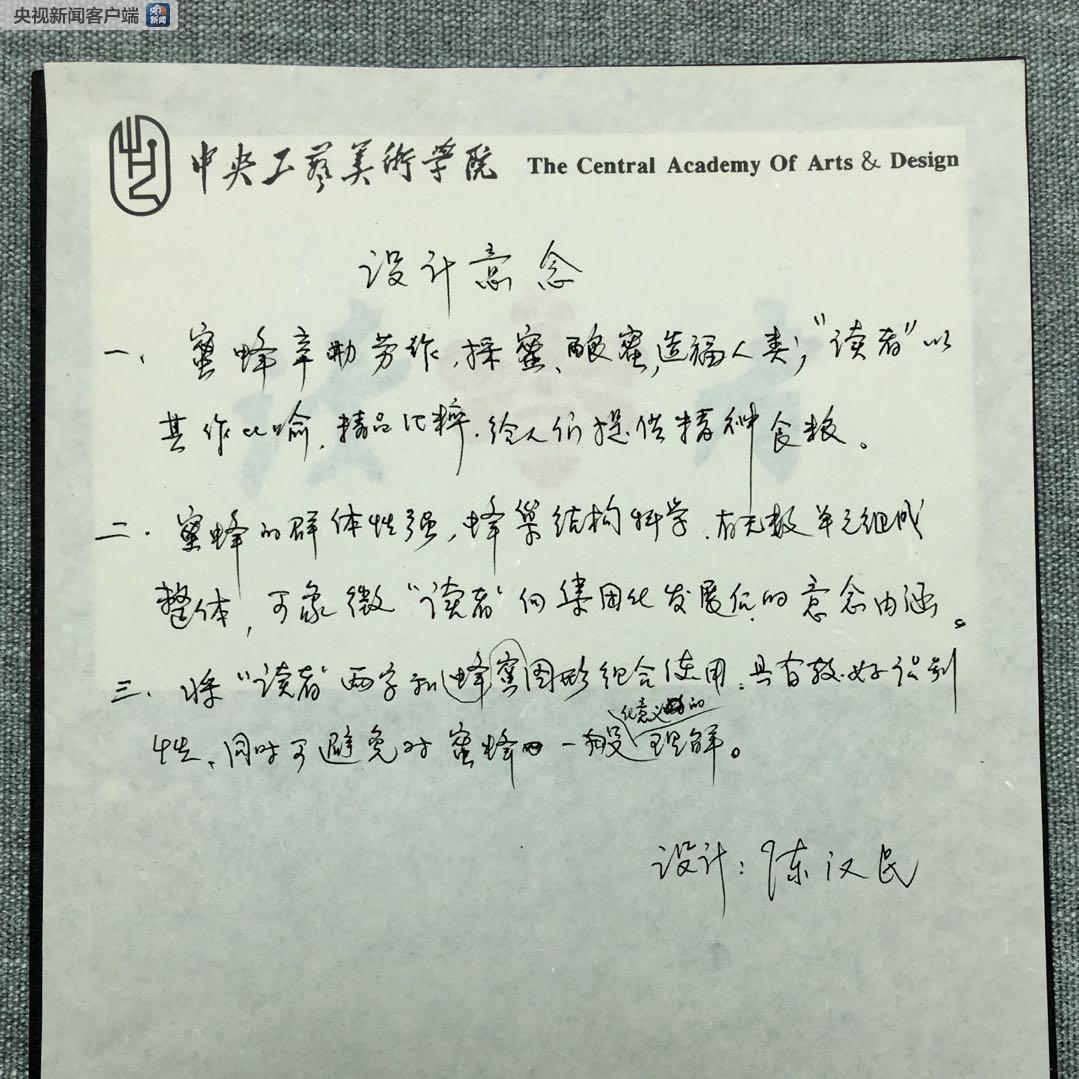 央视新闻客户端
央视新闻
中央工艺美術学院 The Central Academy Of Arts & Design
设计意念
一、蜜蜂辛勤劳作,採蜜、酿蜜,造福人类;"读者"以
其作比喻,精品比粹.给人们提供精神食粮。
二.蜜蜂的群体性强,蜂巢结构科学.有无数单元组成
整体,可象徵"读者"向集团化发展的意念内涵。
三.将"读者"两字和蜂蜜图形组合使用.具有较好识别
性、同时可避免对蜜蜂一般化意义的理解。
设计:陈汉民